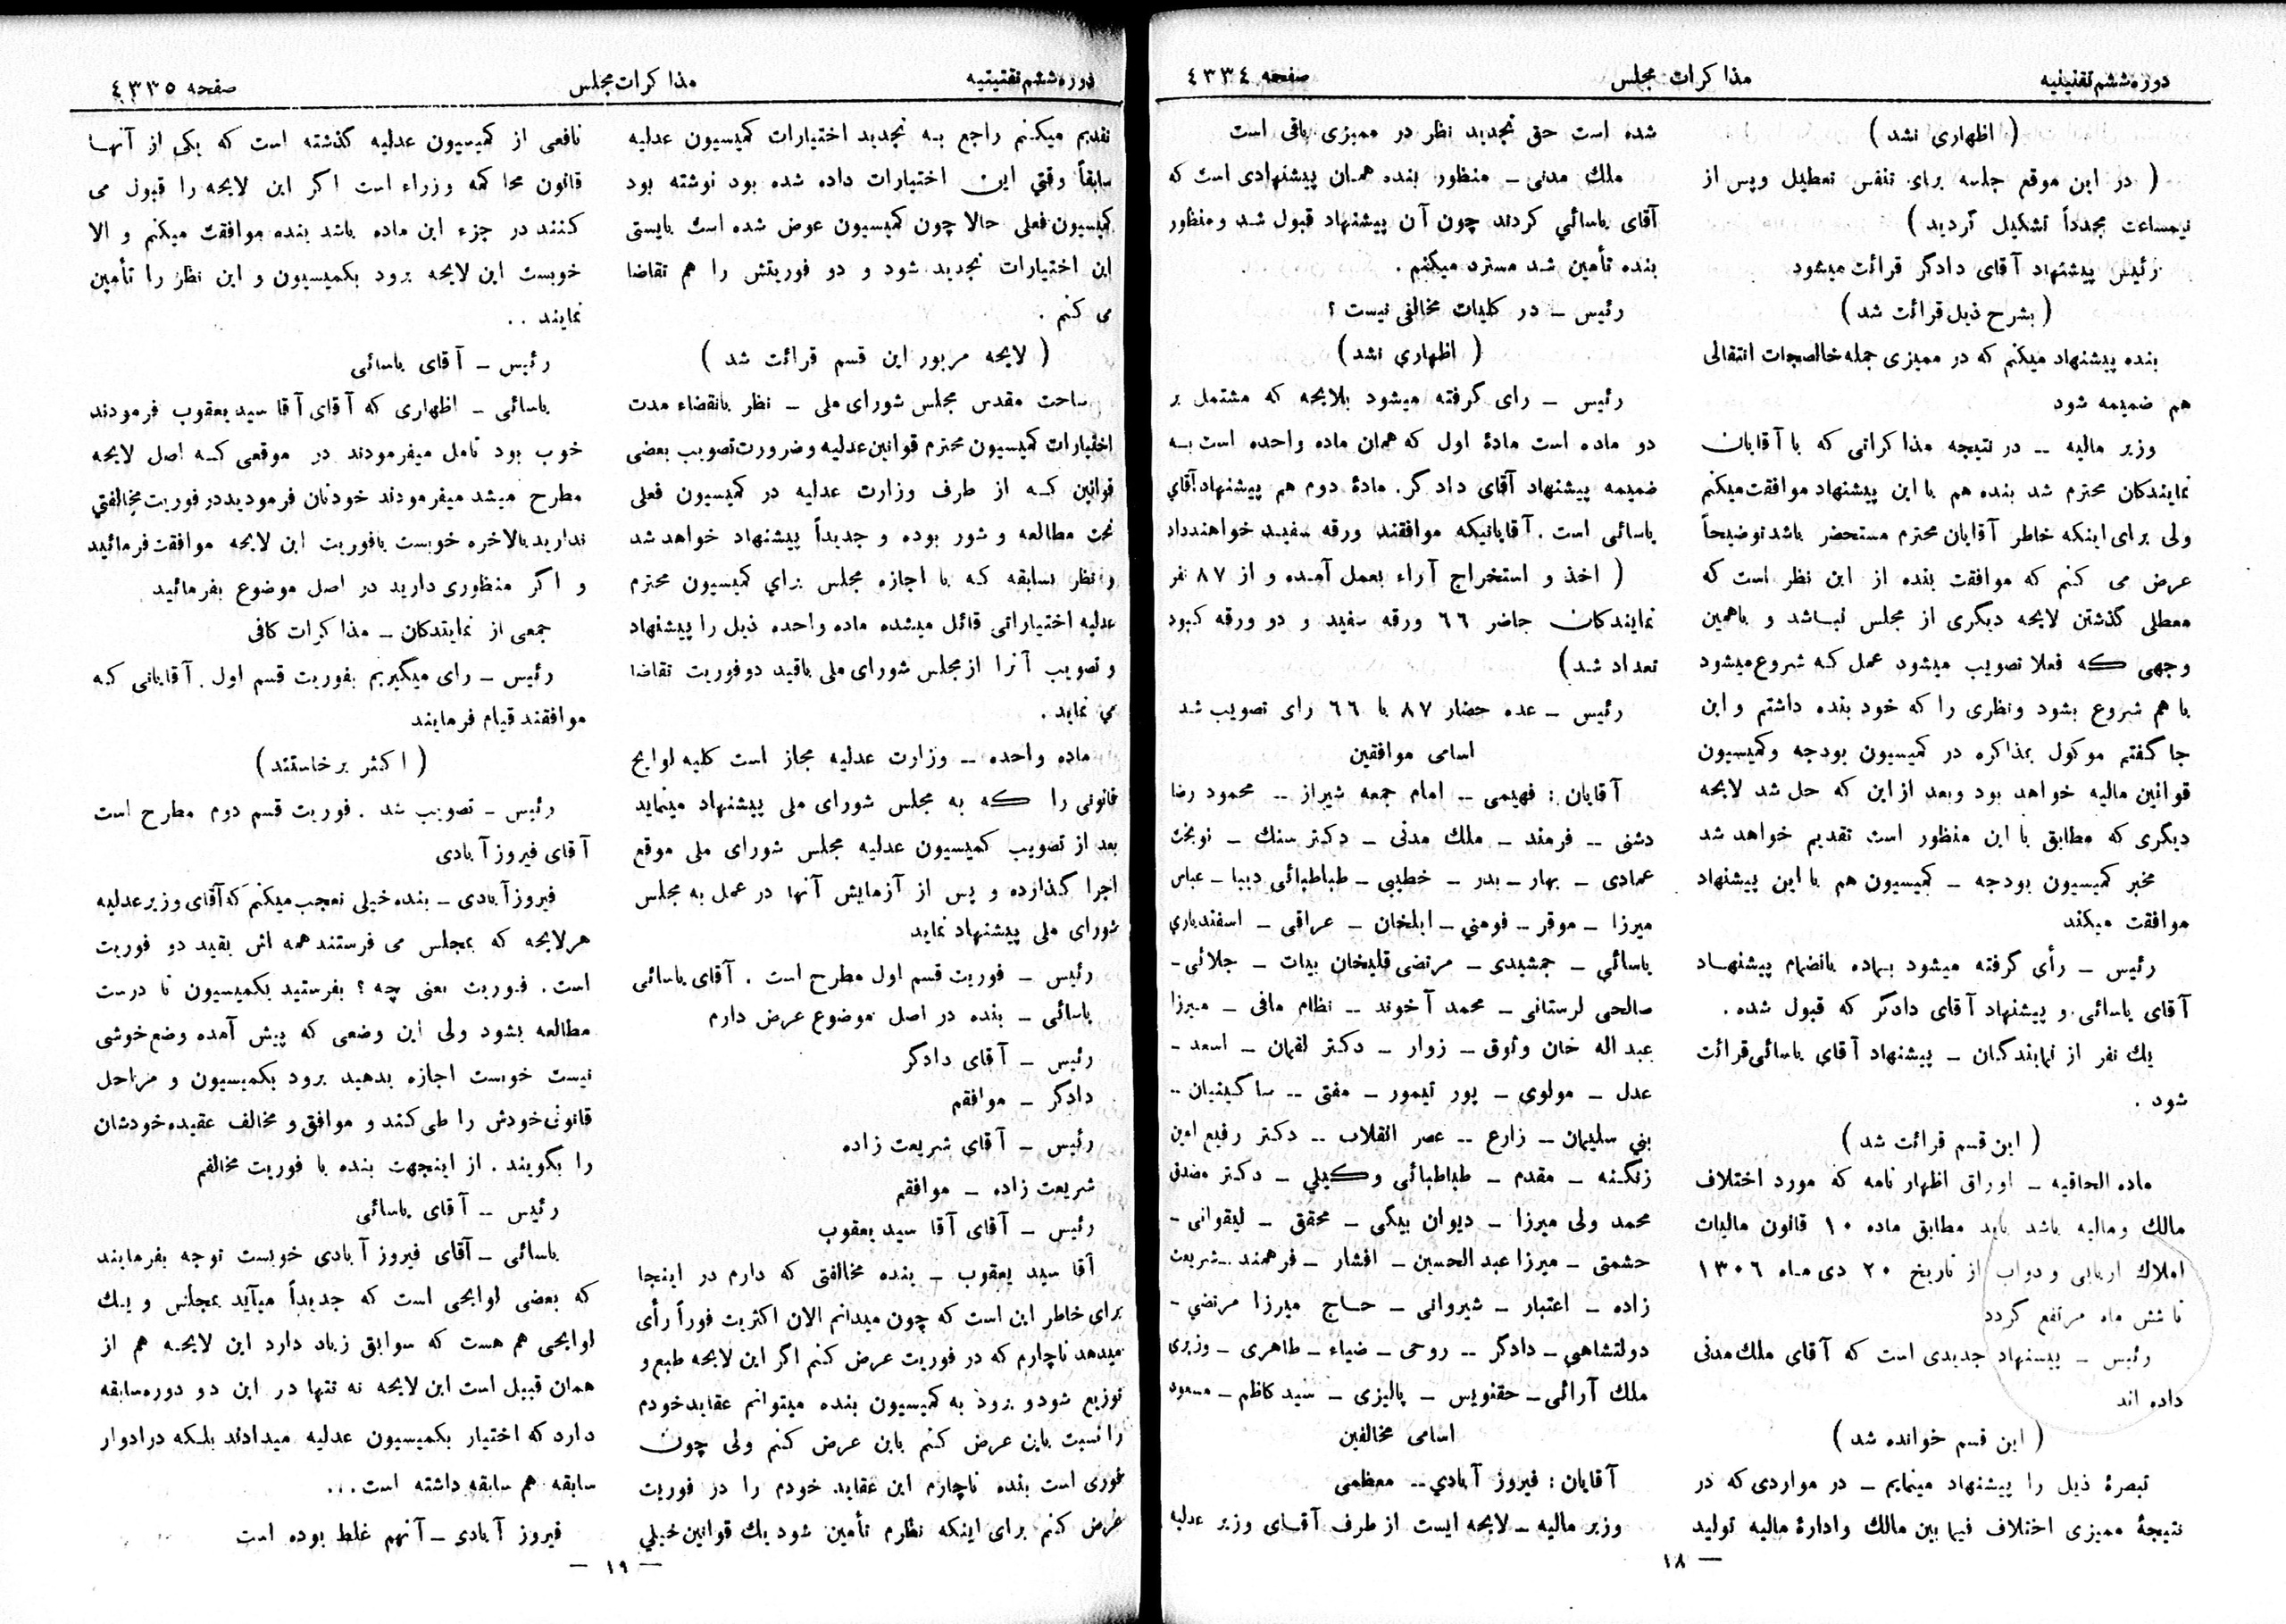 دوره ششم تقنینیه
مذاکرات مجلس
صفحه ٤٣٣٤
( اظهاری نشد )
( در این موقع جلسه برای تنفس تعطیل و پس از
نیمساعت مجدداً تشکیل گردید )
رئیس پیشنهاد آقای دادگر قرائت میشود
( بشرح ذیل قرائت شد )
بنده پیشنهاد میکنم که در ممیزی جمله خالصجات انتقالی
هم ضمیمه شود
وزیر مالیه ــ در نتیجه مذاکراتی که با آقایان
نمایندگان محترم شد بنده هم با این پیشنهاد موافقت میکنم
ولی برای اینکه خاطر آقایان محترم مستحضر باشد توضیحاً
عرض می کنم که موافقت بنده از این نظر است که
معطلی گذشتن لایحه دیگری از مجلس نباشد و باهمین
وجهی که فعلا تصویب میشود عمل که شروع میشود
با هم شروع بشود ونظری را که خود بنده داشتم و این
جا گفتم موکول بمذاکره در کمیسیون بودجه وکمیسیون
قوانین مالیه خواهد بود وبعد از این که حل شد لایحه
دیگری که مطابق با این منظور است تقدیم خواهد شد
مخبر کمیسیون بودجه ــ کمیسیون هم با این پیشنهاد
موافقت میکند
رئیس ــ رأی گرفته میشود بماده بانضمام پیشنهاد
آقای یاسائی و پیشنهاد آقای دادگر که قبول شده .
یك نفر از نمایندگان ــ پیشنهاد آقای یاسائی قرائت
شود .
( این قسم قرائت شد )
ماده الحاقیه ــ اوراق اظهار نامه که مورد اختلاف
مالك ومالیه باشد باید مطابق ماده ١٠ قانون مالیات
املاك اربابی و دواب از تاریخ ٢٠ دی ماه ١٣٠٦
تا شش ماه مرتفع گردد
رئیس ــ پیشنهاد جدیدی است که آقای ملك مدنی
داده اند
( این قسم خوانده شد )
تبصرهٔ ذیل را پیشنهاد مینمایم ــ در مواردی که در
نتیجهٔ ممیزی اختلاف فیما بین مالك وادارهٔ مالیه تولید
شده است حق تجدید نظر در ممیزی باقی است
ملك مدنی ــ منظور بنده همان پیشنهادی است که
آقای یاسائی کردند چون آن پیشنهاد قبول شد ومنظور
بنده تأمین شد مسترد میکنم .
رئیس ــ در کلیات مخالفی نیست ؟
( اظهاری نشد )
رئیس ــ رای گرفته میشود بلایحه که مشتمل بر
دو ماده است مادهٔ اول که همان ماده واحده است به
ضمیمه پیشنهاد آقای دادگر. مادهٔ دوم هم پیشنهاد آقای
یاسائی است . آقایانیکه موافقند ورقه سفید خواهند داد
( اخذ و استخراج آراء بعمل آمده و از ٨٧ نفر
نمایندگان حاضر ٦٦ ورقه سفید و دو ورقه کبود
تعداد شد )
رئیس ــ عده حضار ٨٧ با ٦٦ رای تصویب شد
اسامی موافقین
آقایان : فهیمی ــ امام جمعه شیراز ــ محمود رضا
دشتی ــ فرمند ــ ملك مدنی ــ دکتر سنك ــ نوبخت
عمادی ــ بهار ــ بدر ــ خطیبی ــ طباطبائی دیبا ــ عباس
میرزا ــ موقر ــ فومنی ــ ایلخان ــ عراقی ــ اسفندیاری
یاسائی ــ جمشیدی ــ مرتضی قلیخان بیات ــ جلائی ــ
صالحی لرستانی ــ محمد آخوند ــ نظام مافی ــ میرزا
عبد اله خان وثوق ــ زوار ــ دکتر لقمان ــ اسعد ــ
عدل ــ مولوی ــ پور تیمور ــ مفتی ــ ساکینیان ــ
بنی سلیمان ــ زارع ــ عصر انقلاب ــ دکتر رفیع امین
زنگنه ــ مقدم ــ طباطبائی وکیلی ــ دکتر مصدق
محمد ولی میرزا ــ دیوان بیگی ــ محقق ــ لیقوانی ــ
حشمتی ــ میرزا عبد الحسین ــ افشار ــ فرهمند ــ شریعت
زاده ــ اعتبار ــ شیروانی ــ حاج میرزا مرتضی ــ
دولتشاهی ــ دادگر ــ روحی ــ ضیاء ــ طاهری ــ وزیری
ملك آرائی ــ حقنویس ــ پالیزی ــ سید کاظم ــ مسعود
اسامی مخالفین
آقایان : فیروز آبادی ــ معظمی
وزیر مالیه ــ لایحه ایست از طرف آقای وزیر عدلیه
ــ ١٨
دوره ششم تقنینیه
مذاکرات مجلس
صفحه ٤٣٣٥
تقدیم میکنم راجع به تجدید اختیارات کمیسیون عدلیه
سابقاً وقتی این اختیارات داده شده بود نوشته بود
کمیسیون فعلی حالا چون کمیسیون عوض شده است بایستی
این اختیارات تجدید شود و دو فوریتش را هم تقاضا
می کنم .
( لایحه مزبور این قسم قرائت شد )
ساحت مقدس مجلس شورای ملی ــ نظر بانقضاء مدت
اختیارات کمیسیون محترم قوانین عدلیه و ضرورت تصویب بعضی
قوانین که از طرف وزارت عدلیه در کمیسیون فعلی
تحت مطالعه و شور بوده و جدیداً پیشنهاد خواهد شد
و نظر بسابقه که با اجازه مجلس برای کمیسیون محترم
عدلیه اختیاراتی قائل میشده ماده واحده ذیل را پیشنهاد
و تصویب آنرا از مجلس شورای ملی باقید دو فوریت تقاضا
می نماید .
ماده واحده ــ وزارت عدلیه مجاز است کلیه لوایح
قانونی را که به مجلس شورای ملی پیشنهاد مینماید
بعد از تصویب کمیسیون عدلیه مجلس شورای ملی موقع
اجرا گذارده و پس از آزمایش آنها در عمل به مجلس
شورای ملی پیشنهاد نماید
رئیس ــ فوریت قسم اول مطرح است . آقای یاسائی
یاسائی ــ بنده در اصل موضوع عرض دارم
رئیس ــ آقای دادگر
دادگر ــ موافقم
رئیس ــ آقای شریعت زاده
شریعت زاده ــ موافقم
رئیس ــ آقای آقا سید یعقوب
آقا سید یعقوب ــ بنده مخالفتی که دارم در اینجا
برای خاطر این است که چون میدانم الان اکثریت فوراً رأی
میدهد ناچارم که در فوریت عرض کنم اگر این لایحه طبع و
توزیع شود و برود به کمیسیون بنده میتوانم عقاید خودم
را نسبت باین عرض کنم باین عرض کنم ولی چون
فوری است بنده ناچارم این عقاید خودم را در فوریت
عرض کنم برای اینکه نظرم تأمین شود یك قوانین خیلی
نافعی از کمیسیون عدلیه گذشته است که یکی از آنها
قانون محاکمه وزراء است اگر این لایحه را قبول می
کنند در جزء این ماده باشد بنده موافقت میکنم و الا
خوبست این لایحه برود بکمیسیون و این نظر را تأمین
نمایند ..
رئیس ــ آقای یاسائی
یاسائی ــ اظهاری که آقای آقا سید یعقوب فرمودند
خوب بود تامل میفرمودند در موقعی که اصل لایحه
مطرح میشد میفرمودند خودتان فرمودید در فوریت مخالفتی
ندارید بالاخره خوبست بافوریت این لایحه موافقت فرمائید
و اگر منظوری دارید در اصل موضوع بفرمائید
جمعی از نمایندگان ــ مذاکرات کافی
رئیس ــ رای میگیریم بفوریت قسم اول . آقایانی که
موافقند قیام فرمایند
( اکثر برخاستند )
رئیس ــ تصویب شد . فوریت قسم دوم مطرح است
آقای فیروز آبادی
فیروز آبادی ــ بنده خیلی تعجب میکنم که آقای وزیر عدلیه
هر لایحه که بمجلس می فرستند همه اش بقید دو فوریت
است . فوریت یعنی چه ؟ بفرستید بکمیسیون تا درست
مطالعه بشود ولی این وضعی که پیش آمده وضع خوشی
نیست خوبست اجازه بدهید برود بکمیسیون و مراحل
قانونی خودش را طی کند و موافق و مخالف عقیده خودشان
را بگویند . از اینجهت بنده با فوریت مخالفم
رئیس ــ آقای یاسائی
یاسائی ــ آقای فیروز آبادی خوبست توجه بفرمایند
که بعضی لوایحی است که جدیداً میآید بمجلس و یك
لوایحی هم هست که سوابق زیاد دارد این لایحه هم از
همان قبیل است این لایحه نه تنها در این دو دوره سابقه
دارد که اختیار بکمیسیون عدلیه میدادند بلکه در ادوار
سابقه هم سابقه داشته است ...
فیروز آبادی ــ آنهم غلط بوده است
ــ ١٩ ــ